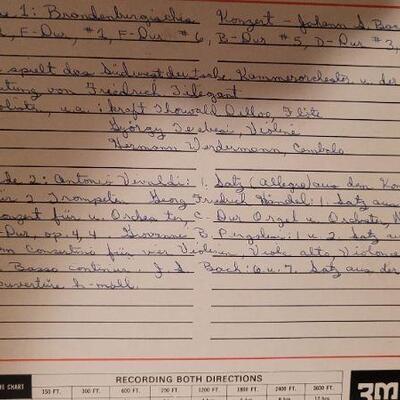 e 1: Brandenburgisches Konzert - Johann S. Bac
, F-Dur, #2, F-Dur #6, B-Dur #5, D-Dur #3,
spielt das Südwestdeutsche Kammerorchester u. der
tung von Friedrich Tilegant
olisten, u.a.: Kraft Thorwald Dilloo, Flöte
György Terebesi, Violine
Hermann Werdermann, Cembalo
de 2: Antonio Vivaldi: 1. Satz (Allegro) aus dem Kon
für 2 Trompeten Georg Friedrich Händel: 1. Satz aus
onzert für u. Orchester, C-Dur Orgel u. Orchester,
-Dur, op. 4,4 Giovanni B. Pergolesi: 1 u. 2 Satz aus
em Concertino für vier Violinen, Viola alta, Violonce
Basso continuo J.S. Bach: 6 u. 7. Satz aus der
ouvertüre h-moll.
RECORDING BOTH DIRECTIONS
ME CHART 150 FT. 300 FT. 600 FT. 1200 FT. 1800 FT. 2400 FT. 3600 FT.
3M